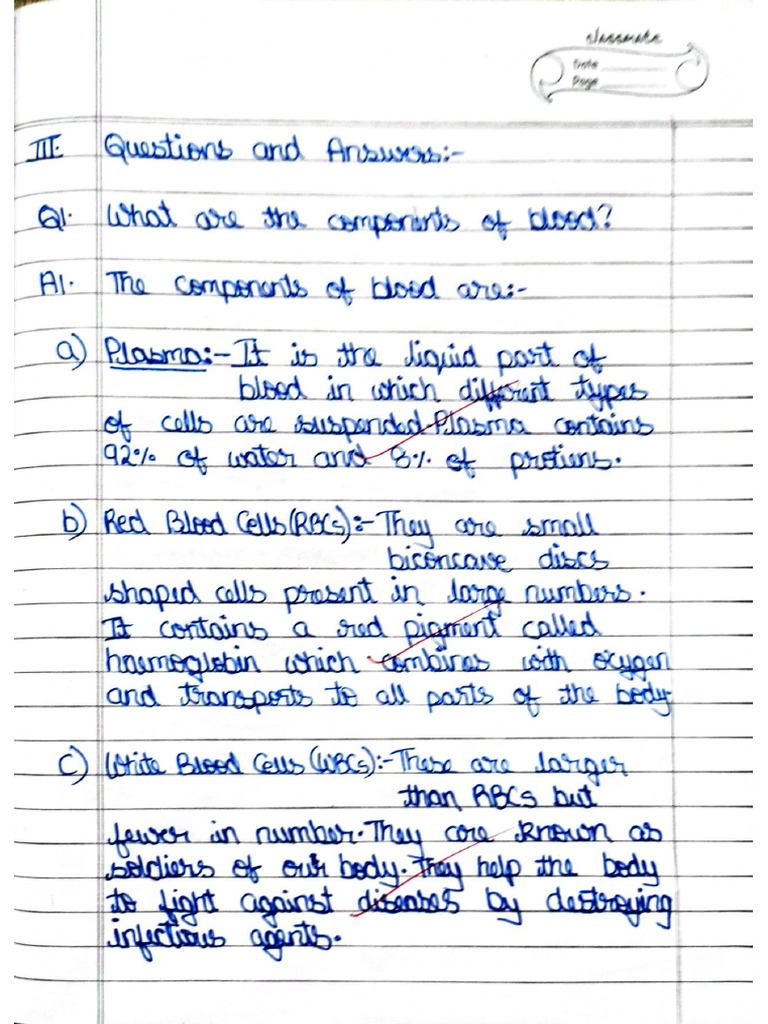 classmate
Date
Page
III. Questions and Answers:-
Q1. What are the components of blood?
A1. The components of blood are:-
a) Plasma:- It is the liquid part of
blood in which different types
of cells are suspended. Plasma contains
92% of water and 8% of protiens.
b) Red Blood Cells (RBCs):- They are small
biconcave discs
shaped cells present in large numbers.
It contains a red pigment called
haemoglobin which combines with oxygen
and transports to all parts of the body.
c) White Blood Cells (WBCs):- These are larger
than RBCs but
fewer in number. They are known as
soldiers of our body. They help the body
to fight against diseases by destroying
infectious agents.